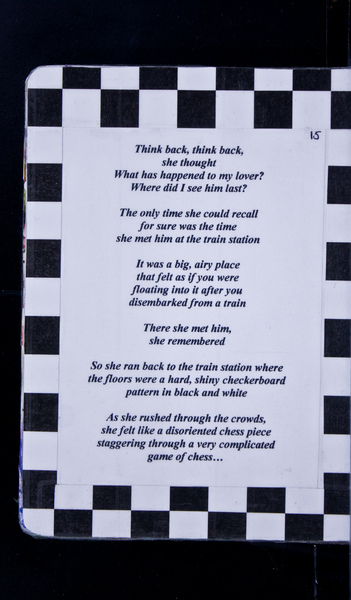 15
Think back, think back,
she thought
What has happened to my lover?
Where did I see him last?
The only time she could recall
for sure was the time
she met him at the train station
It was a big, airy place
that felt as if you were
floating into it after you
disembarked from a train
There she met him,
she remembered
So she ran back to the train station where
the floors were a hard, shiny checkerboard
pattern in black and white
As she rushed through the crowds,
she felt like a disoriented chess piece
staggering through a very complicated
game of chess…